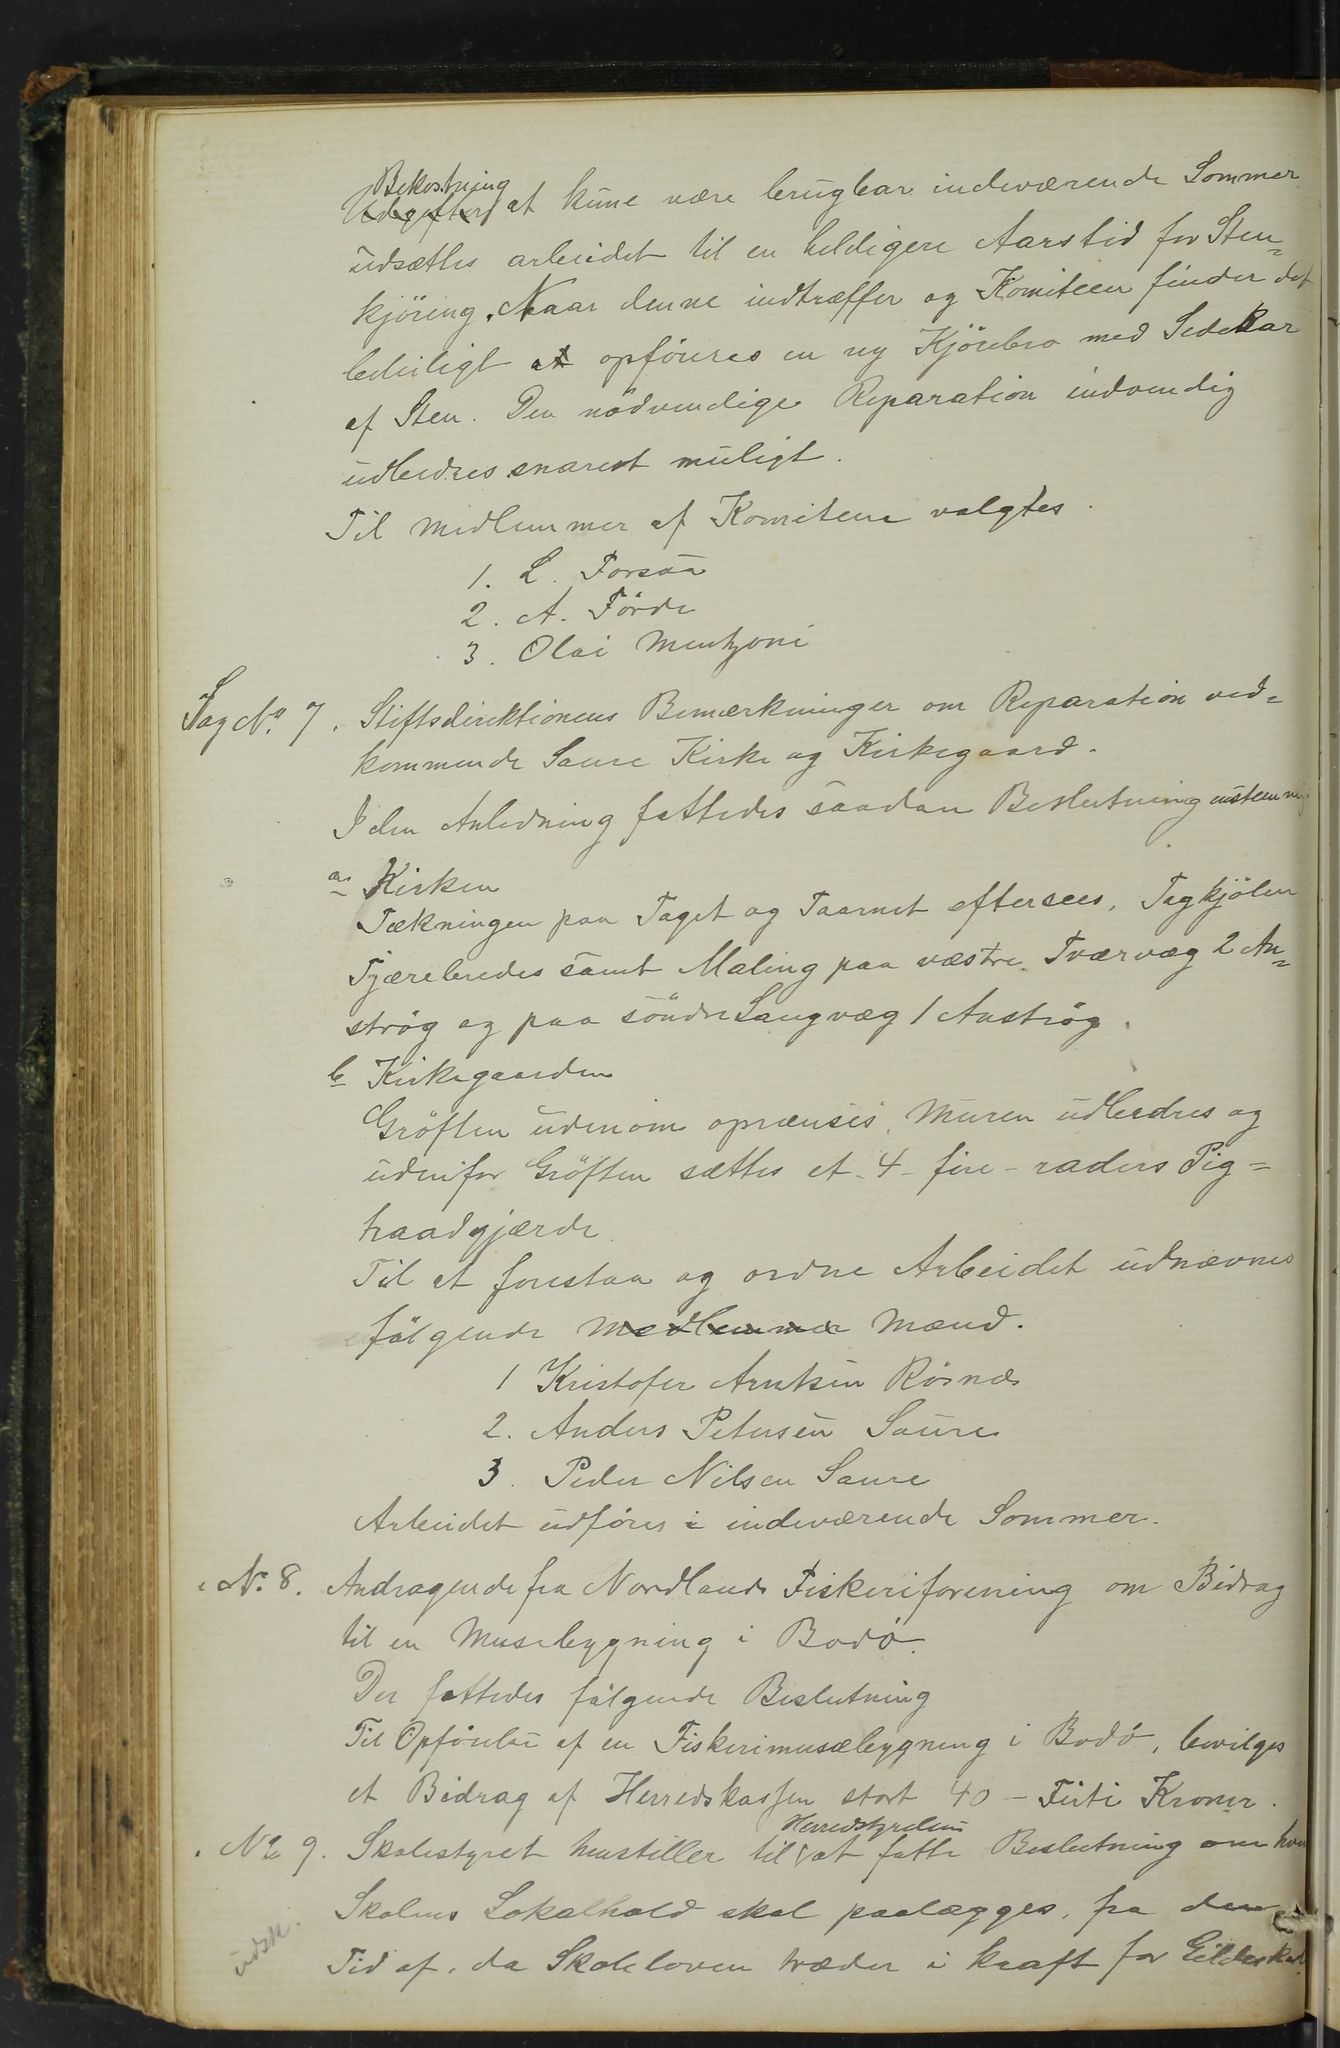 Bekostning
Udgifter at kune være brugbar indeværende Sommer
udsættes arbeidet til en heldigere Aarstid for Sten=
kjöring. Naar denne indtræffer og Komiteen finder det
beleiligt at opföres en ny Kjörebro med Sedekar
af Sten. Den nödvendige Reparation indvendig
udbedres snarest muligt.
Til Medlemmer af Komiteen valgtes.
1. L. Forsaa
2. A. Förde
3. Olai Mentzoni
Sag No. 7. Stiftsdirektionens Bemærkninger om Reparation ved=
kommende Saure Kirke og Kirkegaard.
I den Anledning fattedes saadan Beslutning
a Kirken
Tækningen paa Taget og Taarnet eftersees, Tagkjölen
Tjærebredes samt Maling paa vestre Tværvæg 2 An=
strög og paa söndre Langvæg 1 Anströg.
b Kirkegaarden
Gröften udenom oprenses, Muren udbedres og
udenfor Gröften sættes et 4 - fire - raders Pig=
traadgjærde.
Til at forestaa og ordne Arbeidet udnævnes
fölgende Medlemmer Mænd.
1 Kristofer Arntsen Rösnes
2. Anders Petersen Saure
3. Peder Nilsen Saure
Arbeidet udföres i indeværende Sommer.
No. 8. Andragende fra Nordlands Fiskeriforening om Bidrag
til en Musebygning i Bodö.
Der fattedes fölgende Beslutning
Til Opförelse af en Fiskerimusæbygning i Bodö, bevilges
et Bidrag af Herredskassen stort 40 - Firti Kroner.
Herredstyrelsen
No 9. Skolestyret henstiller til at fatte Beslutning om hvem
Skolens Lokalhold skal paalægges, fra den
Tid af, da Skoleloven træder i kraft for Gildeskaal
udsk.